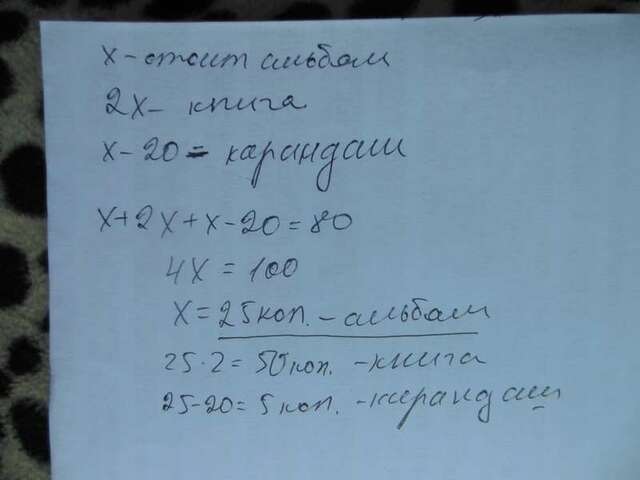 х - стоит альбом
2х - книга
х - 20 = карандаш
х + 2х + х - 20 = 80
4х = 100
х = 25 коп. - альбом
25 · 2 = 50 коп. - книга
25 - 20 = 5 коп. - карандаш